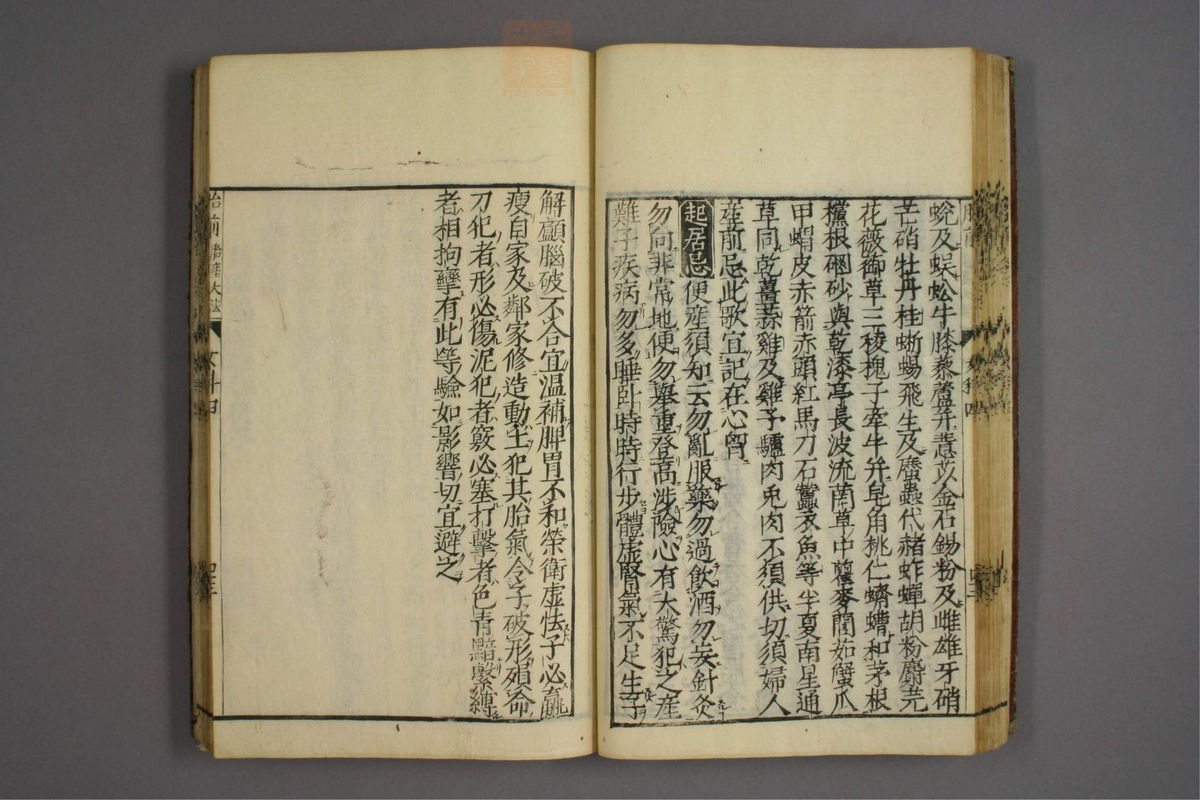 蛻及蜈蚣牛膝藜蘆并薏苡金石錫粉及雌雄牙硝
芒硝牡丹桂蜥蜴飛生及䗪蟲代赭蚱蟬胡粉麝芫
花薇御草三稜槐子牽牛并皂角桃仁蠐螬和茅根
欓根硇砂與乾漆亭長波流茵草中瞿麥䕡茹蟹爪
甲蝟皮赤箭赤頭紅馬刀石蠶衣魚等半夏南星通
草同乾薑蒜雞及雞子驢肉兎肉不須供切須婦人
產前忌此歌宜記在心胷
起居忌 便產須知云勿亂服藥勿過飲酒勿妄針灸
勿向非常地便勿舉重登高涉險心有大驚犯之產
難子疾病勿多睡臥時時行步體虛腎氣不足生子
解顱腦破不合宜溫補脾胃不和榮衛虛怯子必羸
瘦自家及鄰家修造動土犯其胎氣令子破形殞命
刀犯者形必傷泥犯者竅必塞打擊者色靑黯繫縛
者相拘攣有此等驗如影響切宜避之
胎前 治產大法 女科四